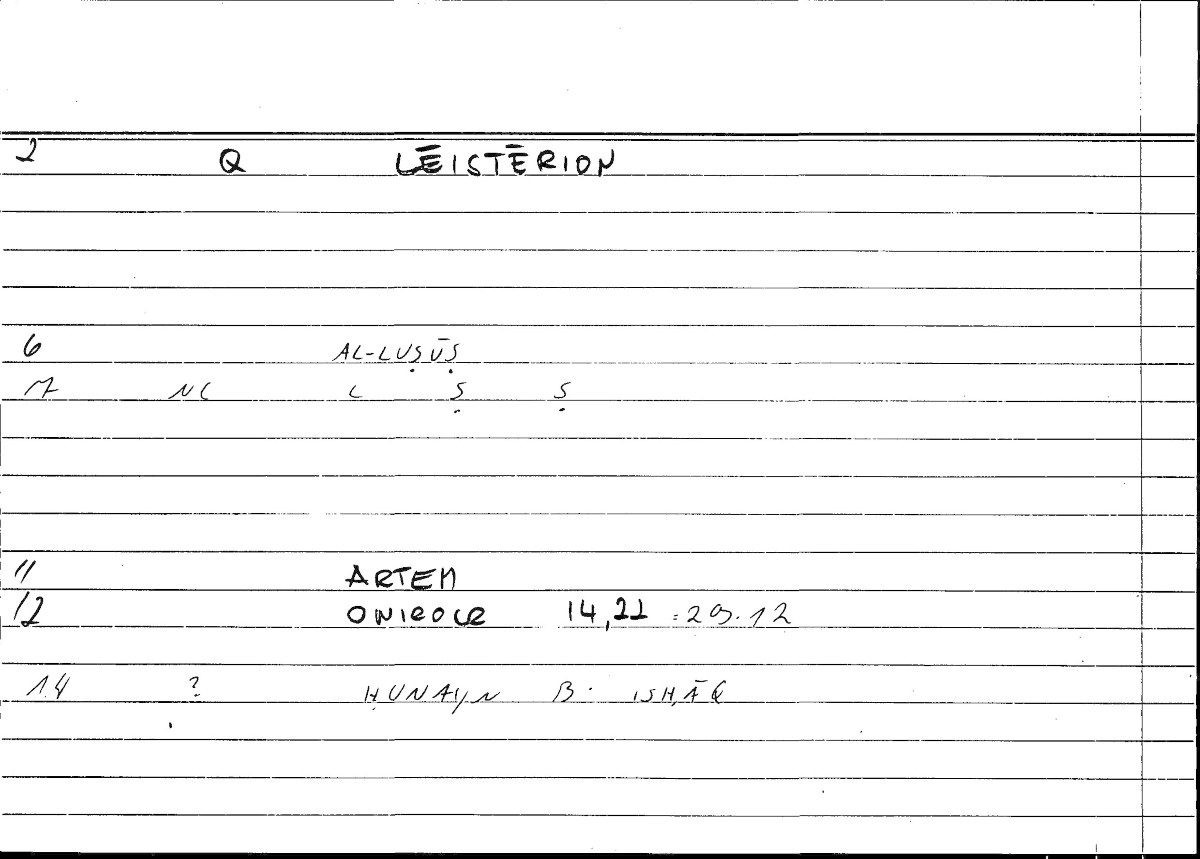 2 Q LĒISTĒRION
6 AL-LUṢŪṢ
7 NC L Ṣ Ṣ
11 ARTEM
12 ONIROCR 14,22 = 29.12
14 ? ḤUNAYN B. ISḤĀQ